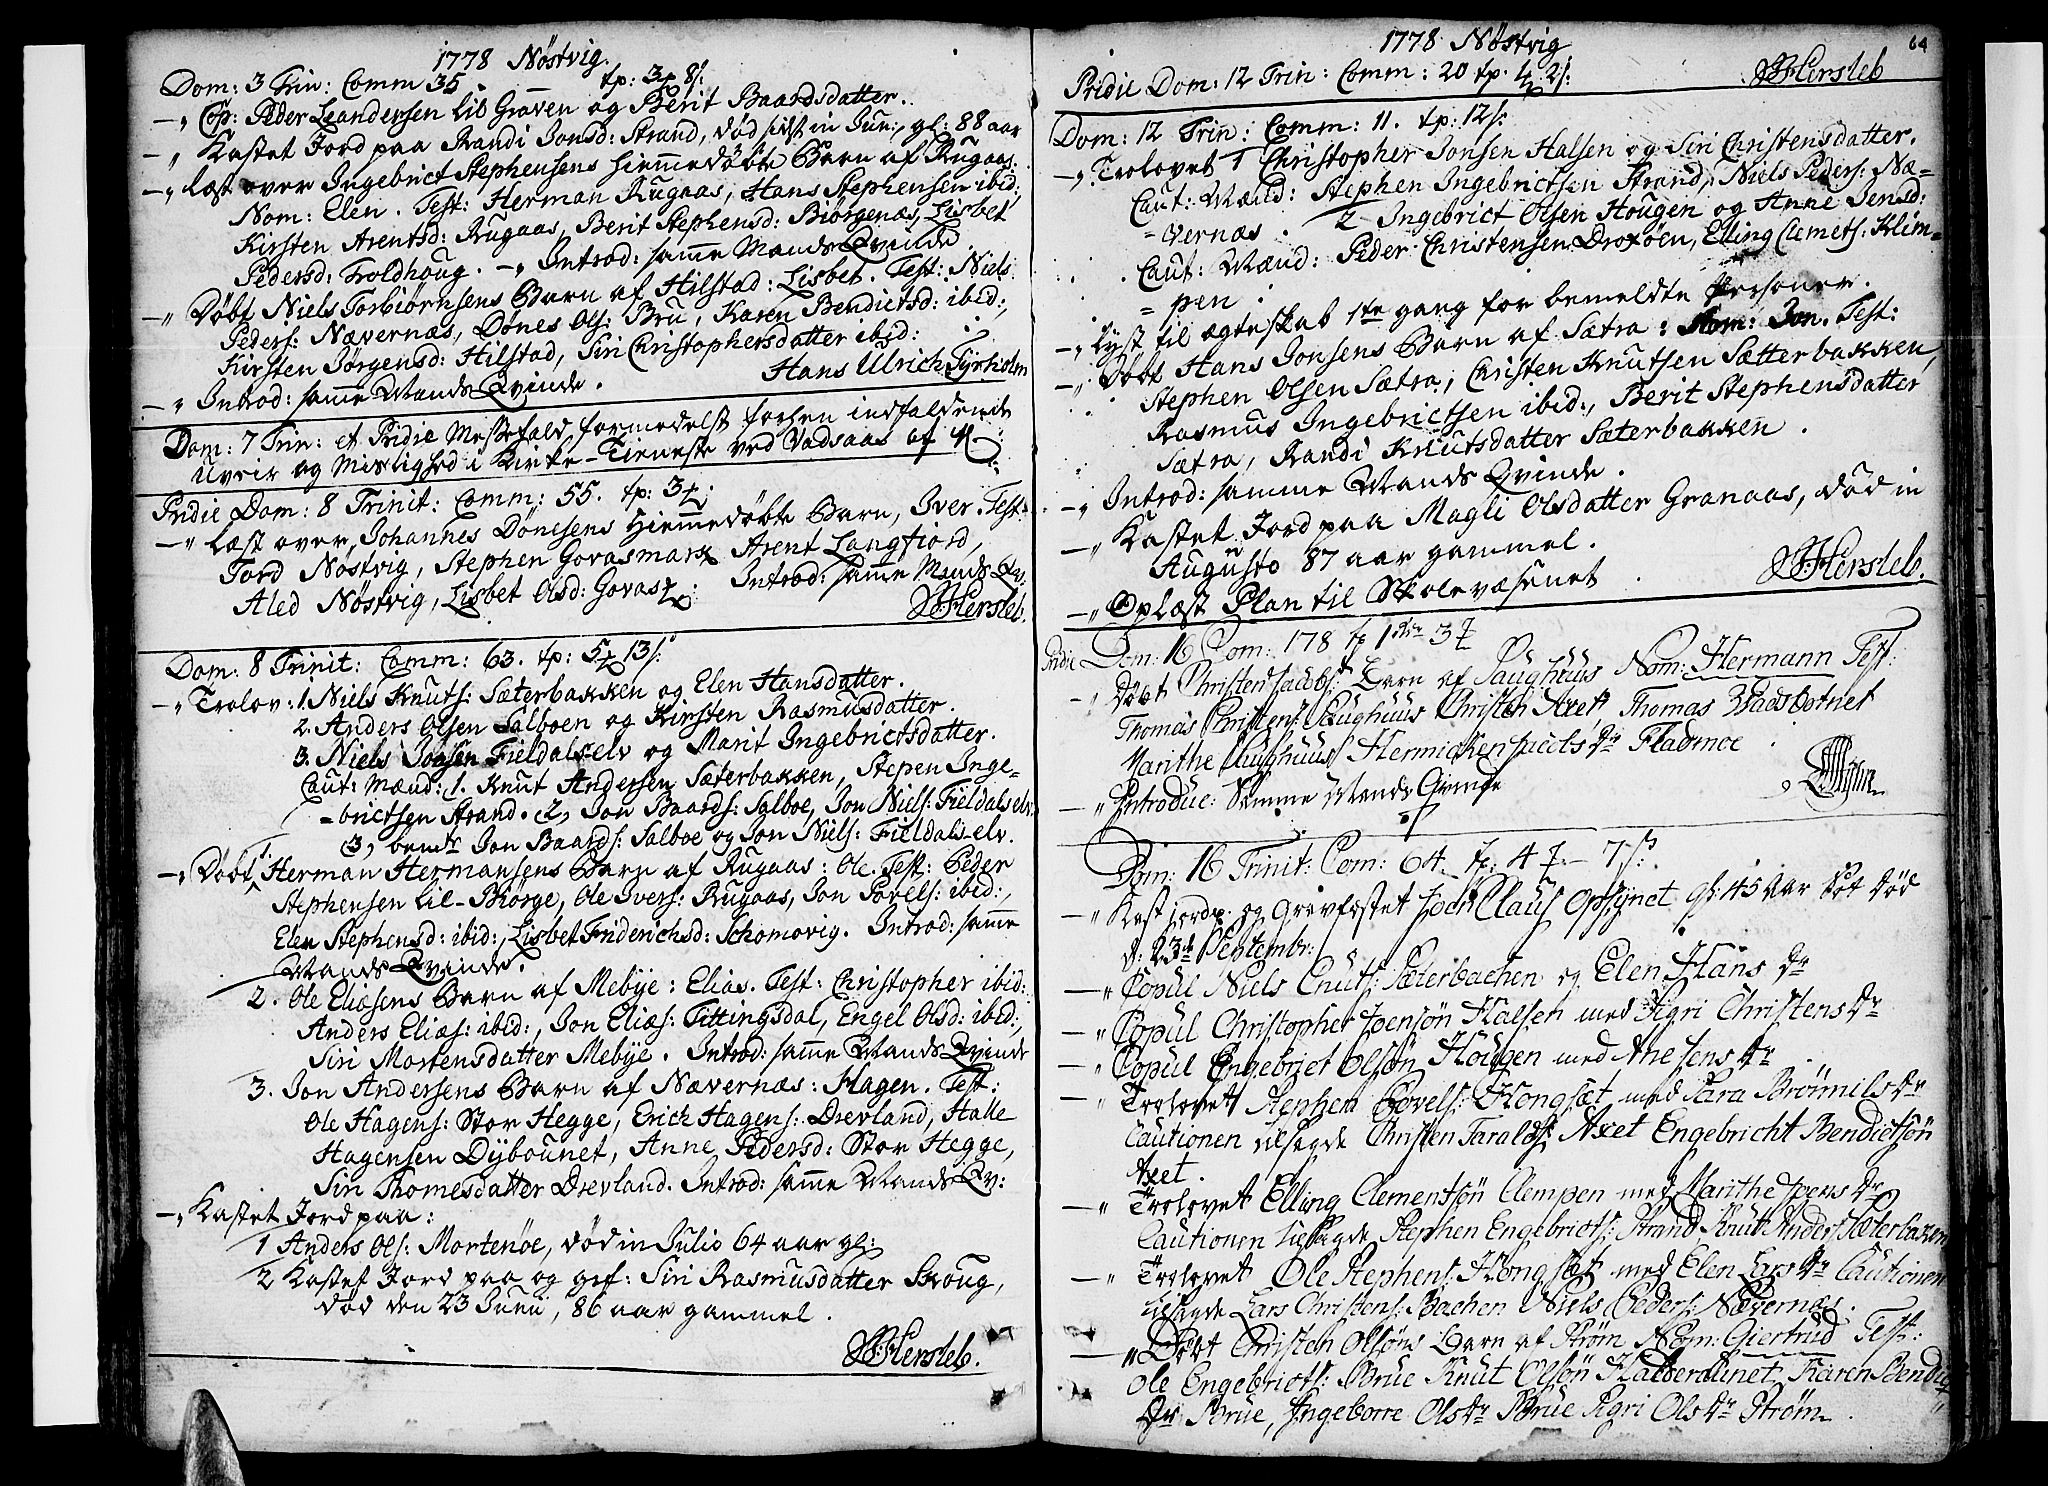 1778 Nøstvig.
Dom: 3 Trin: Comm 35. tp: 3 8/:
-„ Cop: Peder Leandersen lil Graven og Berit Baardsdatter.
-„ Kastet Jord paa Randi Jonsd: Strand, død sidst in Jun:, gl: 88 aar
-„ Læst over Ingebrict Stephensens hiemmedøbte Barn af Rugaas.
Nom: Elen. Test: Herman Rugaas, Hans Stephensen ibid:,
Kirsten Arentsd: Rugaas, Berit Stephensd: Biørgenæs, Lisbet
Pedersd: Troldhoug. -„ Introd: samme Mands Qvinde.
-„ Døbt Niels Torbiørnsens Barn af Hilstad: Lisbet. Test: Niels
Peders: Nævernæs, Dønes Ols: Bru, Karen Bendictsd: ibid:,
Kirsten Jørgensd: Hilstad, Siri Christophersdatter ibid:
-„ Introd: samme Mands Qvinde. Hans Ulrich Tyrholm
Dom: 7 Trin: et Pridie Messefald formedelst forhen indfaldende
Uveir og Mislighed i Kirke-Tieneste ved Vadsaas af
Pridie Dom: 8 Trinit: Comm: 55. tp: 3
-„ Læst over, Johannes Dønesens Hiemmedøbte Barn, Iver. Test:
Tord Nøstvig, Stephen Govasmark Arent Langfiord,
Aled Nøstvig, Lisbet Olsd: Govas Introd: samme Mands Qv:
Hersleb.
Dom: 8 Trinit: Comm: 63. tp: 5 13/:
-„ Trolov: 1. Niels Knuts: Sæterbakken og Elen Hansdatter.
2. Anders Olsen Salboen og Kirsten Rasmusdatter.
3. Niels Jonsen Fieldalselv og Marit Ingebrictsdatter.
Caut: Mænd: 1. Knut Andersen Sæterbakken, Stepen Inge=
=brictsen Strand. 2, Jon Baards: Salboe, Jon Niels: Fieldalselv
3, bemdte Jon Baards: Salboe og Jon Niels: Fieldalselv.
-„ Døbt 1. Herman Hermansens Barn af Rugaas: Ole. Test: Peder
Stephensen lil-Biørge, Ole Ivers: Rugaas, Jon Povels: ibid:,
Elen Stephensd: ibid:, Lisbet Friderichsd: Schomovig. Introd: samme
Mands Qvinde.
2. Ole Eliæsens Barn af Mebye: Elias. Test: Christopher ibid:
Anders Eliæs: ibid:, Jon Eliæs: Tittingsdal, Engel Olsd: ibid:,
Siri Mortensdatter Mebye. Introd: samme Mands Qvinde
3. Jon Andersens Barn af Nævernæs: Hagen. Test:
Ole Hagens: Stor Hegge, Erich Hagens: Drevland, Halle
Hagensen Dybounet, Anne Pedersd: Stor Hegge,
Siri Thomesdatter Drevland. Introd: samme Mands Qv:
-„ Kastet Jord paa:
1 Anders Ols: Mortenøe, død in Julio 64 aar gl:
2 Kastet Jord paa og gef: Siri Rasmusdatter Skoug,
død den 23 Junii, 86 aar gammel.
Hersleb.
1778 Nøstvig
64
Pridie Dom: 12 Trin: Comm: 20 tp. 4 2/:
Hersleb
Dom: 12 Trin: Comm: 11. tp: 12/:
-„ Trolovet 1 Christopher Jonsen Halsen og Siri Christensdatter.
Caut: Mænd: Stephen Ingebrictsen Strand, Niels Peders: Næ=
=vernæs. 2 Ingebrict Olsen Hougen og Anne Jensd:
Caut: Mænd: Peder Christensen Droxøen, Elling Clemets: Klim=
=pen.
-„ Lyst til ægteskab 1ste gang for bemeldte Personer.
-„ Døbt Hans Jonsens Barn af Sætra: Nom: Jon. Test:
Stephen Olsen Sætra, Christen Knutsen Sætterbakken,
Rasmus Ingebrictsen ibid:, Berit Stephensdatter
Sætra, Randi Knutsdatter Sæterbakken.
-„ Introd: samme Mands Qvinde.
-„ Kastet Jord paa Magli Olsdatter Granaas, død in
Augusto 87 aar gammel.
-„ Oplæst Plan til Skolevæsenet. Hersleb.
Pridie Dom: 16 Com: 178 tp 1 3
-„ Døbt Christen Jacobs: Barn af Saughuus Nom: Hermann Test:
Thomas Christens: Saughuus Christen Axet Thomas Vadsbotnet
Marithe Saughuus Hermicken Jacobs dr Fladmoe.
-„ Introduc: Samme Mands Qvinde
Dom: 16 Trinit: Com: 64. tp: 4 - 7/:
-„ Kast jordp. og Gravfæstet Joen Claus Opsynet gl: 45 Aar død
d: 23de Septembr:
-„ Copul Niels Cnuts: Sæterbachen og Elen Hans dr
-„ Copul Christopher Joensøn Halsen med Sigri Christens dr
-„ Copul Engebrict Olsøn Hougen med Ane Jens dr.
-„ Trolovet Stephen Povels: Hongsæt med Sara Brømils dr
Cautionen tilsagde Christen Taralds: Axet Engebricht Bendictsøn
Axet.
-„ Trolovet Elling Clementsøn Clempen med Marithe Joens dr
Cautionen tilsagde Stephen Engebricts: Strand Knut Anders: Sæterbaken
-„ Trolovet Ole Stephens: Hongsæt med Elen Lars dr Cautionen
tilsagde Lars Christens: Bachen Niels Peders: Nævernæs.
-„ Døbt Christen Olsøns Barn af Strøm Nom: Giertrud Test:
Ole Engebricts: Brue Knut Olsøn Karen Bendict
dr Brue, Ingeborre Ols dr Brue Sigri Ols dr Strøm.